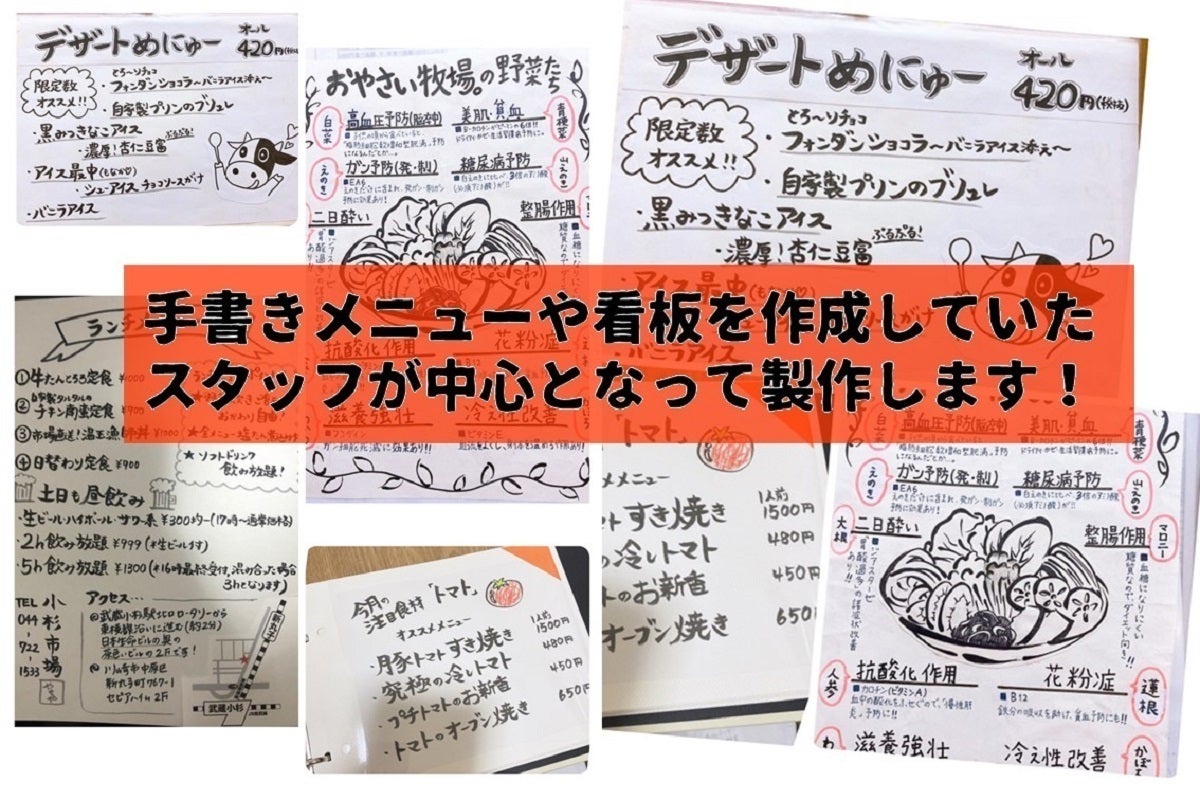 デザートめにゅー
オール
420円(税抜)
限定数
オススメ!!
とろ〜りチョコ
・フォンダンショコラ〜バニラアイス添え〜
・自家製プリンのブリュレ
・黒みつきなこアイス
ぷるぷる!
・濃厚!杏仁豆腐
・アイス最中(もなか)
・シューアイス チョコソースがけ
・バニラアイス
おやさい牧場。の野菜たち
白菜
高血圧予防(脳卒中)
美肌・貧血
青梗菜
えのき
ガン予防(発・制)
■EA6
糖尿病予防
山えのき
二日酔い
整腸作用
抗酸化作用
花粉症
■B12
滋養強壮
冷え性改善
■ビタミンE
デザートめにゅー
オール
420円(税抜)
限定数
オススメ!!
とろ〜りチョコ
・フォンダンショコラ〜バニラアイス添え〜
・自家製プリンのブリュレ
・黒みつきなこアイス
ぷるぷる!
・濃厚!杏仁豆腐
・アイス最中
・バニラアイス
手書きメニューや看板を作成していた
スタッフが中心となって製作します!
ランチ
①牛たんとろろ定食 ¥1000
②自家製タルタルの
チキン南蛮定食 ¥900
③市場直送!温玉漁師丼 ¥1000
④日替わり定食 ¥900
おかわり自由!
★ソフトドリンク
飲み放題!
土日も昼飲み
・生ビール・ハイボール・サワー系 ¥300均一(17時〜通常価格)
・2h飲み放題 ¥999(*生ビールます)
・5h飲み放題 ¥1300(*16時最終受付、混み合った場合
3hになります)
TEL
044
-
722
-
1533
小杉市場
アクセス…
@武蔵小杉駅北口ロータリーから
東横線沿いに進む(約2分)
日本生命ビルの奥の
茶色いビルの2Fです!
@川崎市中原区
新丸子町767-1
セピアハイム 2F
新丸子
武蔵小杉
今月の
注目食材
「トマト」
オススメメニュー
1人前
・月豚トマトすき焼き 1500円
・究極の冷しトマト 480円
・プチトマトのお新香 450円
・トマトのオーブン焼き 650円
トマト」
メメニュー
1人前
トすき焼き 1500円
の冷しトマト 480円
トのお新香 450円
オーブン焼き 650
白菜
高血圧予防(脳卒中)
美肌・貧血
青梗菜
えのき
ガン予防(発・制)
■EA6
糖尿病予防
山えのき
大根
二日酔い
■ジアスターゼ
整腸作用
マロニー
血糖になりにくい
糖質なので、ダイエット向き!!
人参
抗酸化作用
■カロチン(ビタミンA)
花粉症
■B12
鉄分の吸収を助け、貧血予防にも!!
蓮根
滋養強壮
冷え性改善